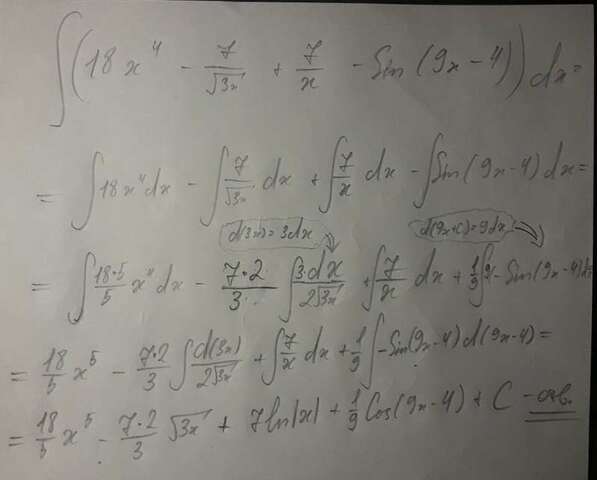 ∫(18x⁴ - 7/√3x + 7/x - Sin(9x-4))dx =
= ∫18x⁴dx - ∫7/√3x dx + ∫7/x dx - ∫Sin(9x-4)dx =
d(3x)=3dx d(9x+C)=9dx
= ∫18·5/5 x⁴dx - 7·2/3 ∫3·dx/2√3x + ∫7/x dx + 1/9 ∫9·-Sin(9x-4)dx
= 18/5 x⁵ - 7·2/3 ∫d(3x)/2√3x + ∫7/x dx + 1/9 ∫-Sin(9x-4)d(9x-4) =
= 18/5 x⁵ - 7·2/3 √3x + 7ln|x| + 1/9 Cos(9x-4) + C - отв.